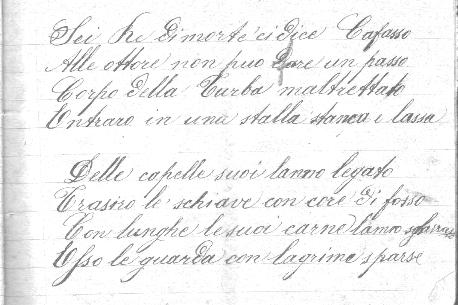 Sei Re di morte ci dice Cafasso
Alle ottore non puo Dare un passo
Corpo della Turba maltrettato
Entraro in una stalla stanca e lassa
Delle capelle suoi lanno legato
Trasiro le schiave con core di fosso
Con lunghe le suoi carne lanno
Esso le guarda con lagrime sparse